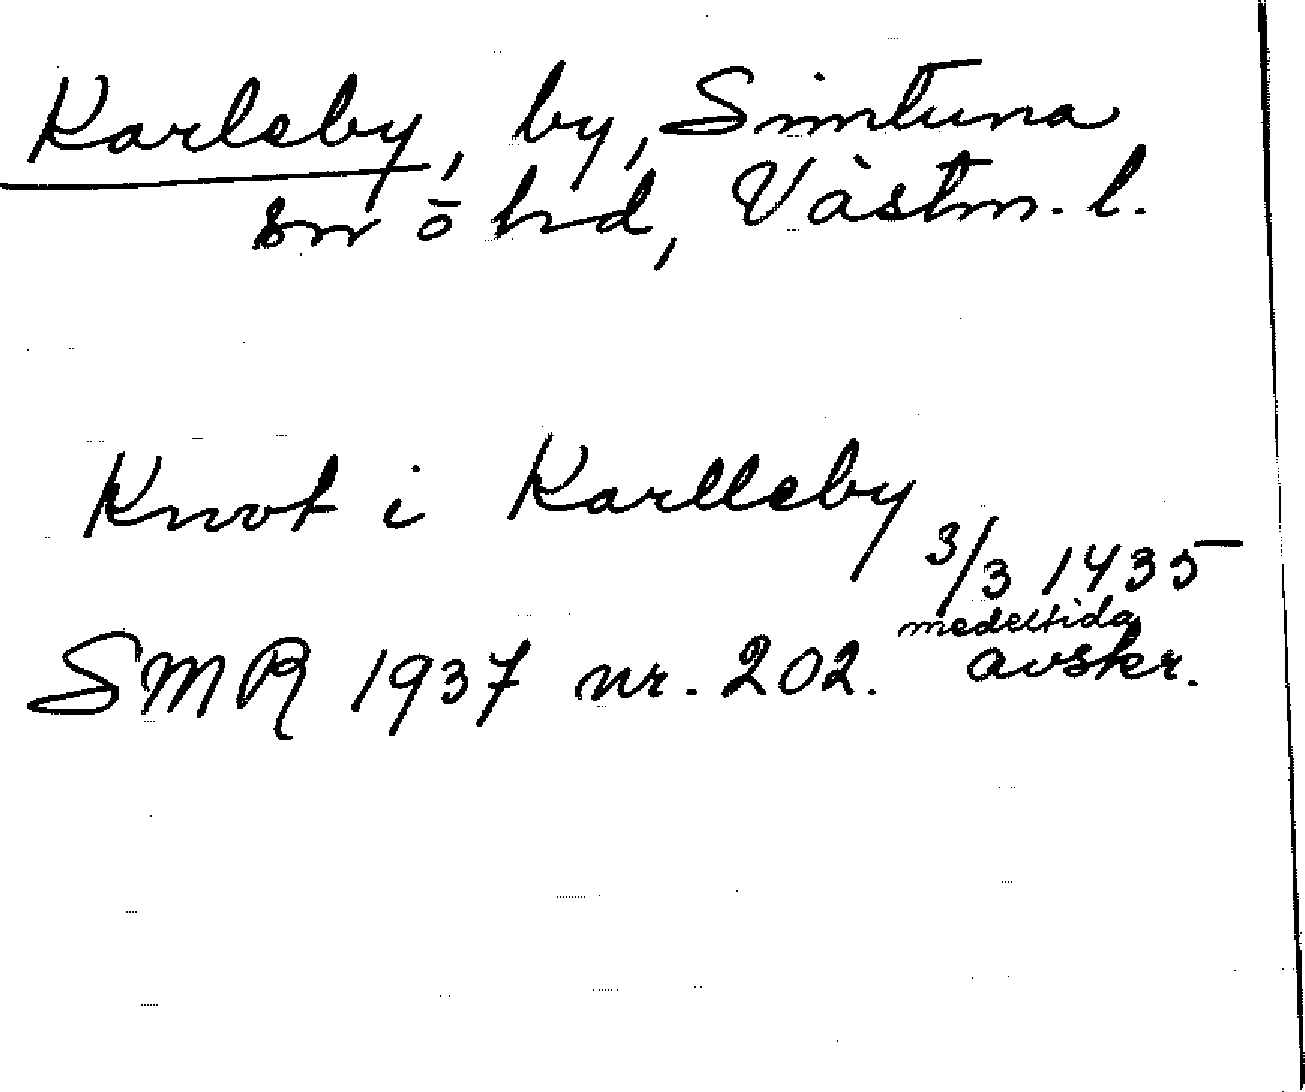 Karleby, by, Simtuna
sn ō hd, Västm. l.
Knvt i Karlleby
3/3 1435
SMR 1937 nr. 202. medeltida
avskr.